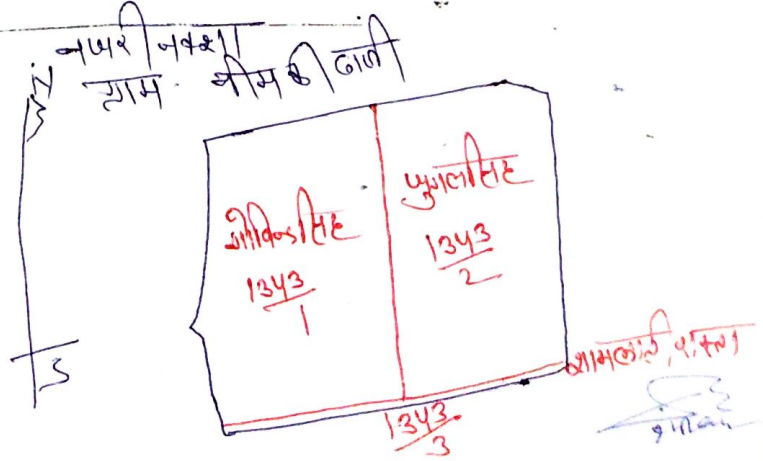 नजरी नक्शा
N
ग्राम नीम की ढाणी
गोविन्दसिंह
1343/1
जुगलसिंह
1343/2
S
शामलाती रास्ता
1343/3